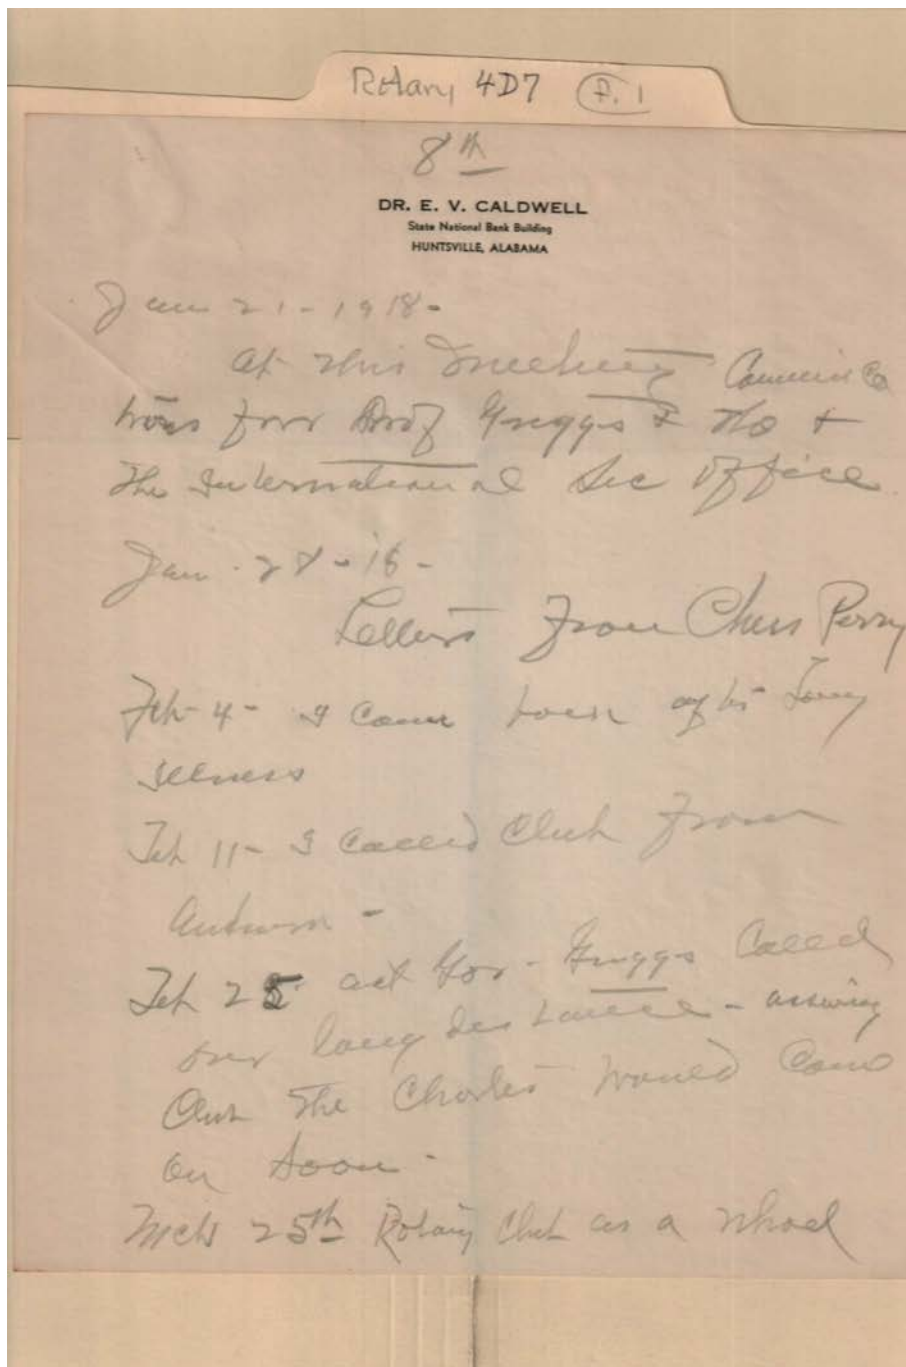 Rotary 4D7 P. 1
8th
DR. E. V. CALDWELL
State National Bank Building
HUNTSVILLE, ALABAMA
Jan 21 - 1918 -
At this meeting Communica
tions from Griggs &
the International Sec office
Jan. 28 - 18 -
Letters from Ches Perry
Feb 4 - I came back after long
illness
Feb 11 - I called Club from
Auburn -
Feb 25 act Gov - Griggs called
over long distance - assuring
Club the Charter would come
on soon -
Mch 25th Rotary Club as a whole